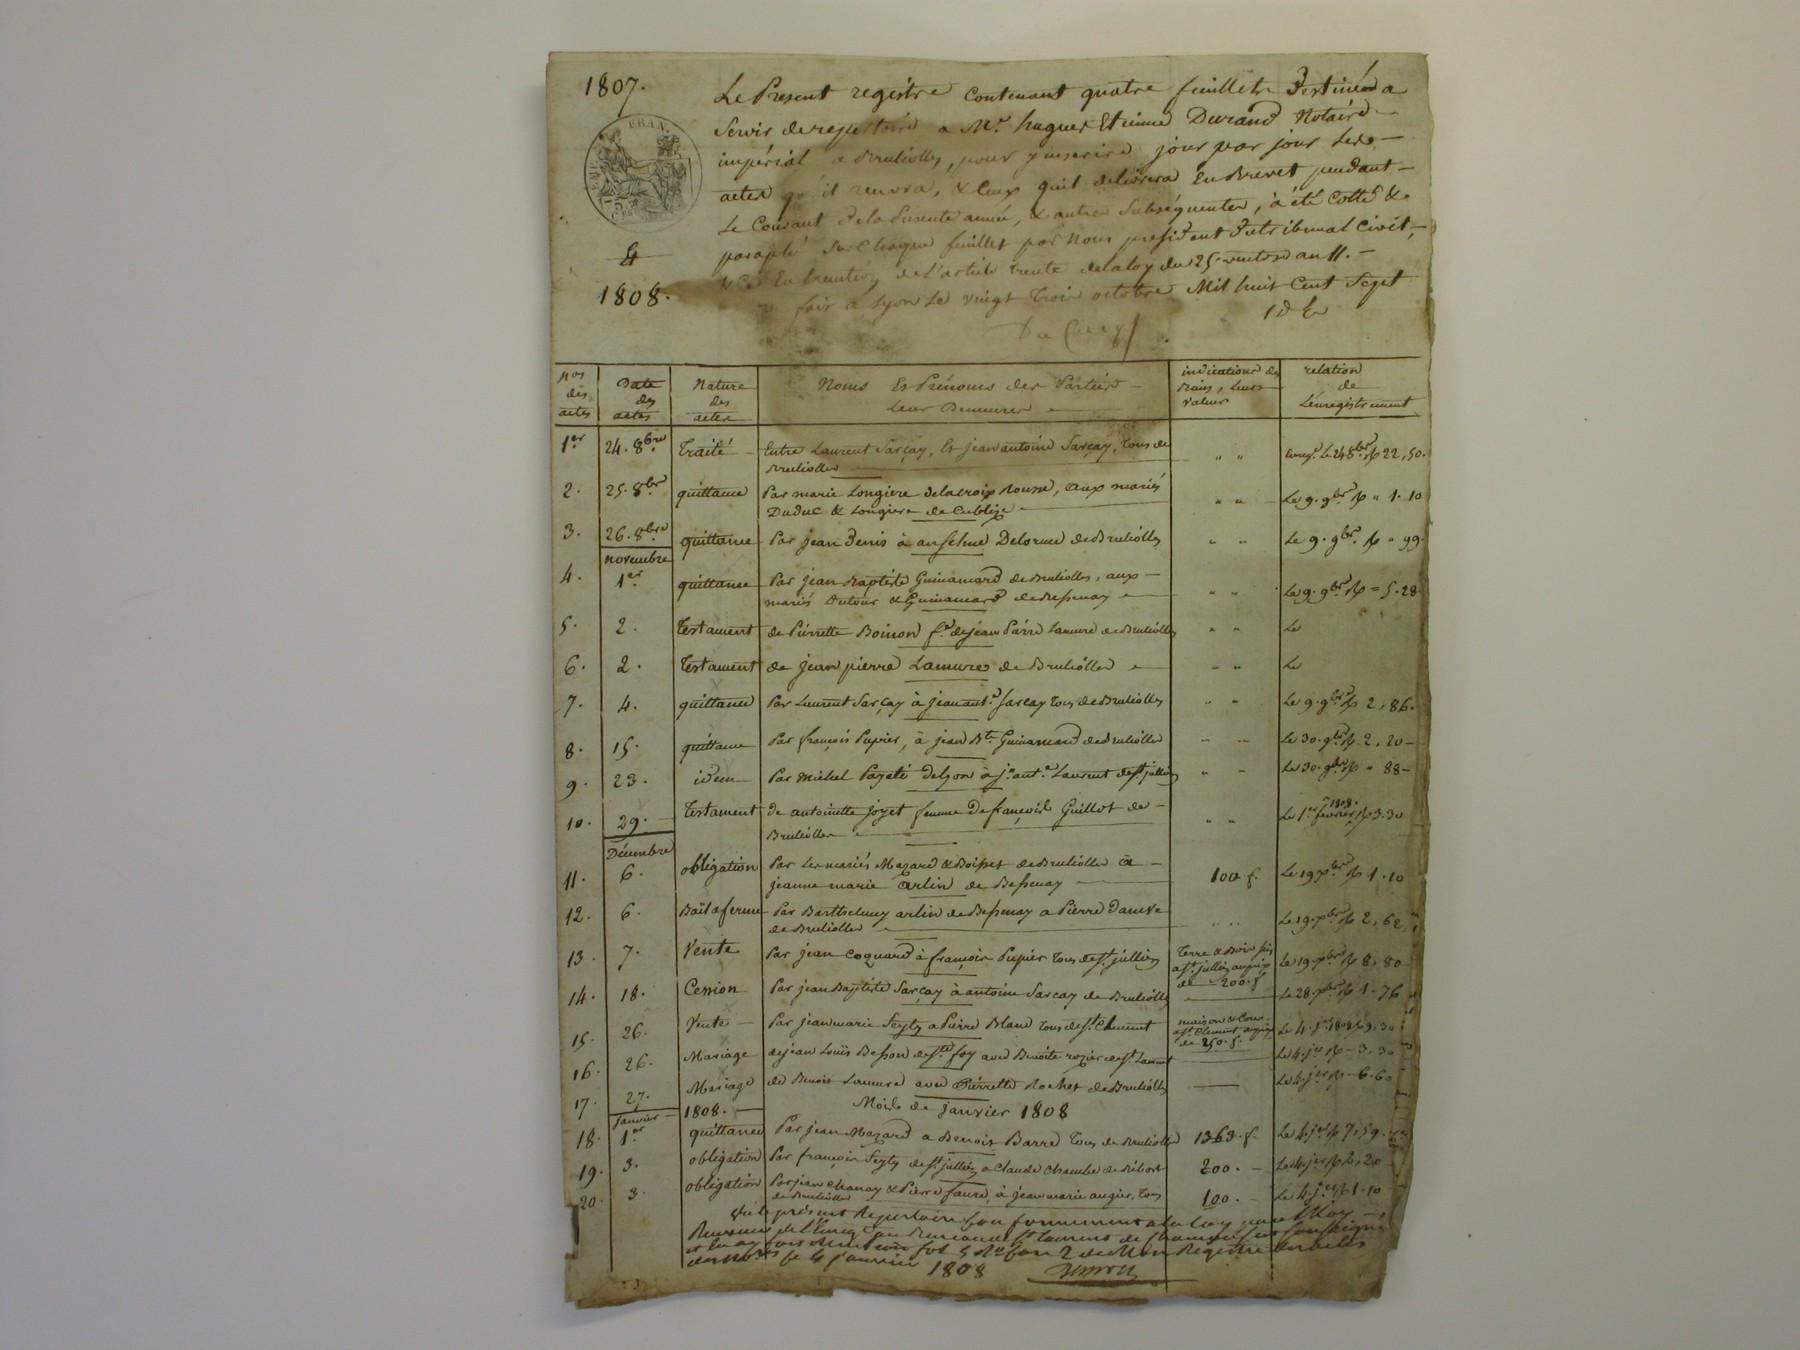 1807.
EMP. FRAN.
&
1808.
Le Present registre Contenant quatre feuillets Destinés a
Servir de repertoire a Mr. hugues Etienne Durand Notaire
impérial a Bruliolles, pour y inscrire jour par jour Les
actes qu'il recevra, & Ceux quil delivrera En Brevet pendant
Le Courant De la Presente année, & autres Subséquentes, à été Cotté &
paraphé Sur Chaque feuillet par Nous president Du tribunal Civil,
& Ce En de L'article trente de la loy du 25 ventose an 11.
fait a Lyon Le vingt trois octobre Mil huit Cent Sept
Nos des actes
Date des actes
Nature des actes
Noms Et Prénoms des Parties
Leur Demeures
indications des biens, Leurs valeur
relation de L'enregistrement
1er 24. 8bre Traité Entre Laurent Sarçay, Et jean antoine Sarçay, tous de
Brulioles " " Le 24 8bre 22,50.
2. 25. 8bre quittance Par marie Longiere de la croix Rousse, aux mariés
Duduc & Longiere de Cublize " " Le 9. 9bre " 1.10
3. 26. 8bre quittance Par jean Denis à anselme Delorme de Brulioles " " Le 9. 9bre " 99.
novembre
4. 1er quittance Par jean Baptiste Guinamard de Brulioles, aux
mariés Dutour & Guinamard de Bessenay " " Le 9. 9bre = 5.28
5. 2. Testament de Pierrette Boinon fe. de jean Pierre Lamure de Brulioles " " Le
6. 2. Testament de jean pierre Lamure de Brulioles " " Le
7. 4. quittance Par Laurent Sarçay à jean ant.e Sarcay tous de Brulioles " " Le 9. 9bre 2,86.
8. 15. quittance Par françois Pupier, à jean Bte. Guinamard de Brulioles " " Le 30. 9bre 2,20
9. 23. idem Par Michel Payet de Lyon à jn. ant.e Laurent de st. jullien " " Le 30. 9bre " 88
10. 29. Testament de antoinette joyet femme De françois Guillot de
Brulioles " " Le 1er fevrier 1808. 3.30
Décembre
11. 6. obligation Par Les mariés Mazard & Boisset de Brulioles à
jeanne marie arlin de Bessenay 100 f. Le 19 xbre 1.10
12. 6. Bail a ferme Par Barthelemy arlin de Bessenay a Pierre
de Brulioles " " Le 19. xbre 2,62
13. 7. Vente Par jean Coquard à françois Pupier tous de st. jullien Terre & Bois sis
a st. jullien au prix
de 200. f. Le 19. xbre 8,80
14. 18. Cession Par jean Baptiste Sarçay à antoine Sarcay de Brulioles Le 28. xbre 1.76
15. 26. Vente Par jean marie Feyty a Pierre Blanc tous de st. Clement maison & Cour
a st. Clement au prix
de 250. f. Le 4. jer 1808
16. 26. Mariage de jean Louis Besson de ste. foy avec Benoite rozier de st. Laurent Le 4. jer 3,30
17. 27. Mariage de Benoit Lamure avec Pierrette Rochet de Brulioles Le 4. jer 6.60
janvier 1808. Mois de janvier 1808
18. 1er quittance Par jean Mazard a Benoit Barret tous de Brulioles 1363. f. Le 4. jer 7,59.
19. 3. obligation Par françois Feyty de st. jullien a Claude Chambe de Ribost 200. Le 4. jer 2,20
20. 3. obligation Par jean Chanay & Pierre faure, à jean marie augier, tous
de Brulioles 100. Le 4. jer 1.10
Vu le présent Repertoire Conformement a la Loy par Moy
Receveur de L'Enreg.
Registre
le 4 janvier 1808